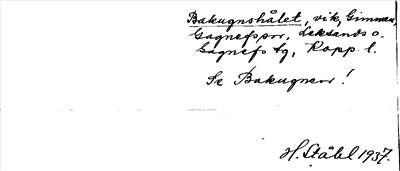 Bakugnshålet, vik, Gimmen,
Gagnefs sn, Leksands o.
Gagnefs tg, Kopp. l.
Se Bakugnen!
H. Ståhl 1937.